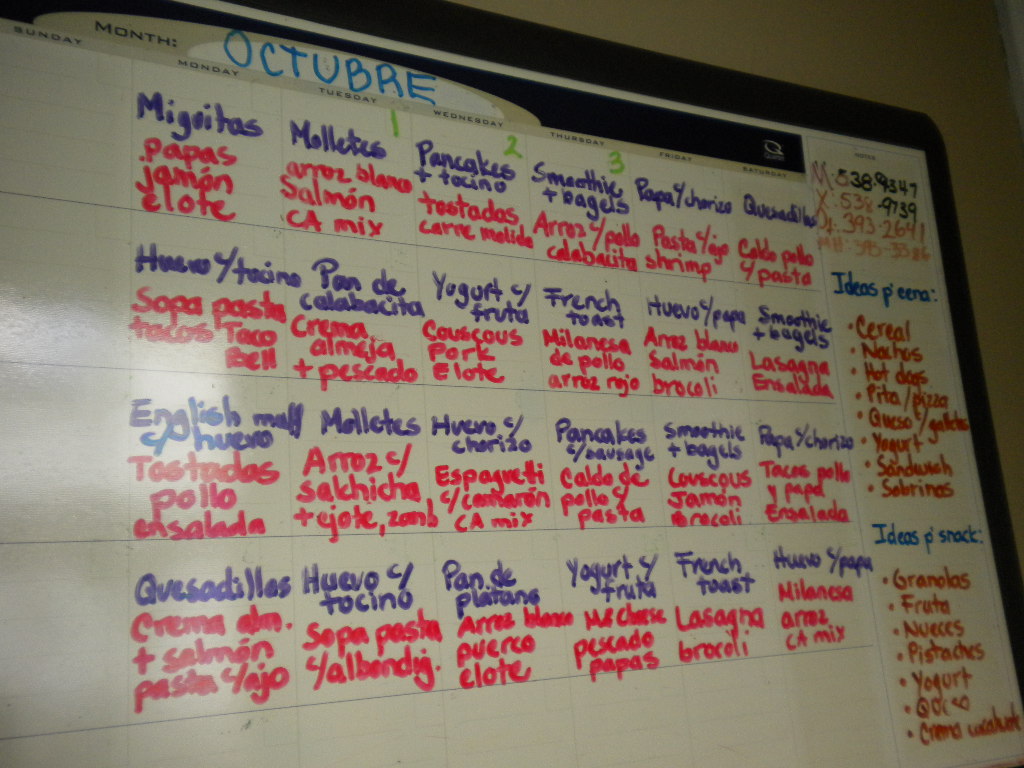 MONTH: OCTUBRE
SUNDAY MONDAY TUESDAY WEDNESDAY THURSDAY FRIDAY SATURDAY
NOTES
Miguitas
papas
jamón
elote
1
Molletes
arroz blanco
Salmón
CA mix
2
Pancakes
+ tocino
tostadas
carne molida
3
Smoothie
+ bagels
Arroz c/pollo
calabacita
Papa c/chorizo
Pasta c/ajo
shrimp
Quesadillas
Caldo pollo
c/pasta
Huevo c/tocino
Sopa pasta
tacos Taco
Bell
Pan de
calabacita
Crema
almeja
+ pescado
Yogurt c/
fruta
Couscous
Pork
Elote
French
toast
Milanesa
de pollo
arroz rojo
Huevo c/papa
Arroz blanco
Salmón
brocoli
Smoothie
+ bagels
Lasagna
Ensalada
English muff
c/ huevo
Tostadas
pollo
ensalada
Molletes
Arroz c/
salchicha
+ ejote, zanb
Huevo c/
chorizo
Espagueti
c/camarón
CA mix
Pancakes
c/sausage
Caldo de
pollo c/
pasta
Smoothie
+ bagels
Couscous
Jamón
Brocoli
Papa c/chorizo
Tacos pollo
y papa
Ensalada
Quesadillas
Crema alm.
+ salmón
pasta c/ajo
Huevo c/
tocino
Sopa pasta
c/albondig.
Pan de
platano
Arroz blanco
puerco
elote
Yogurt c/
fruta
Mc cheese
pescado
papas
French
toast
Lasagna
brocoli
Huevo c/papa
Milanesa
arroz
CA mix
M: 538-9347
X: 538-9739
393-2641
Ideas p' cena:
• Cereal
• Nachos
• Hot dogs
• Pita/pizza
• Queso c/galletas
• Yogurt
• Sandwish
• Sobrinas
Ideas p' snack:
• Granolas
• Fruta
• Nueces
• Pistaches
• Yogurt
• Queso
• Crema cacahuate